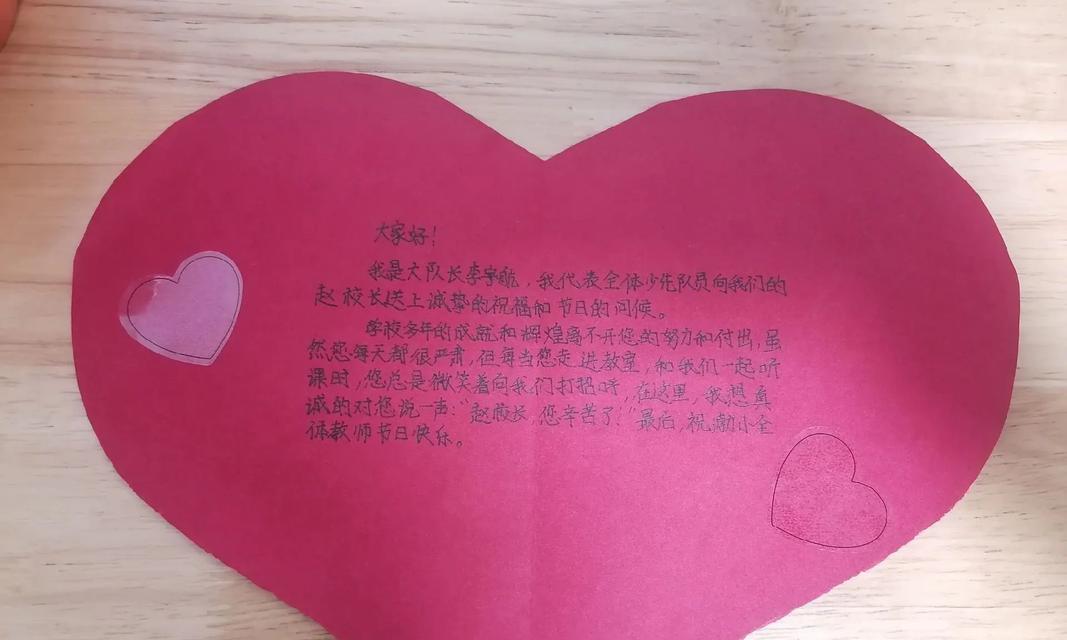 大家好！
我是大队长李宇航，我代表全体少先队员向我们的
赵校长送上诚挚的祝福和节日的问候。
学校多年的成就和辉煌离不开您的努力和付出，虽
然您每天都很严肃，但每当您走进教室，和我们一起听
课时，您总是微笑着向我们打招呼，在这里，我想真
诚的对您说一声：“赵校长，您辛苦了！”最后，祝渤小全
体教师节日快乐。